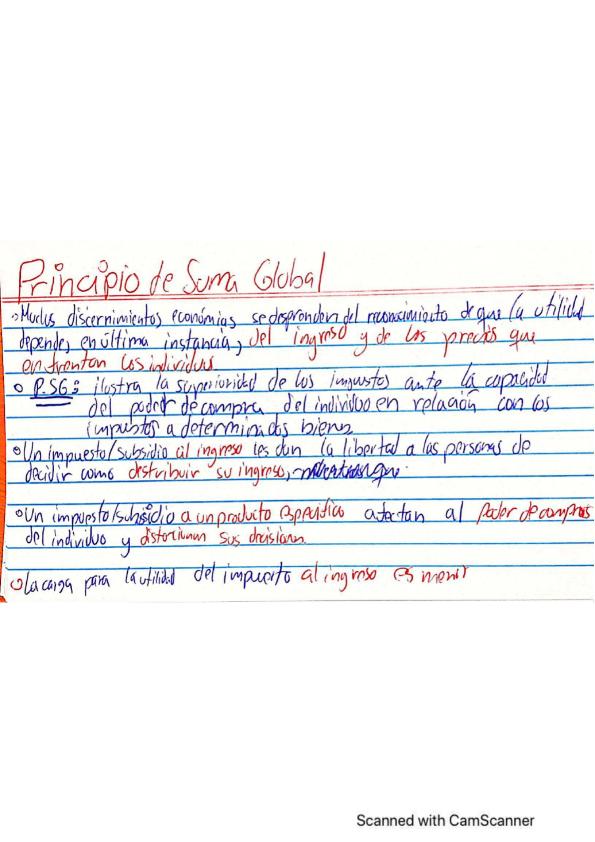 Principio de Suma Global
Muchos discernimientos económicos se desprenden del reconocimiento de que la utilidad
depende, en última instancia, del ingreso y de los precios que
enfrentan los individuos.
P.SG: ilustra la superioridad de los impustos ante la capacidad
del poder de compra del individuo en relación con los
impustos a determinados bienes
Un impuesto/subsidio al ingreso les dan la libertad a las personas de
decidir como distribuir su ingreso,
Un impuesto/subsidio a un producto específico afectan al poder de compras
del individuo y distorcionan sus decisiones.
La carga para la utilidad del impuesto al ingreso es menor
Scanned with CamScanner